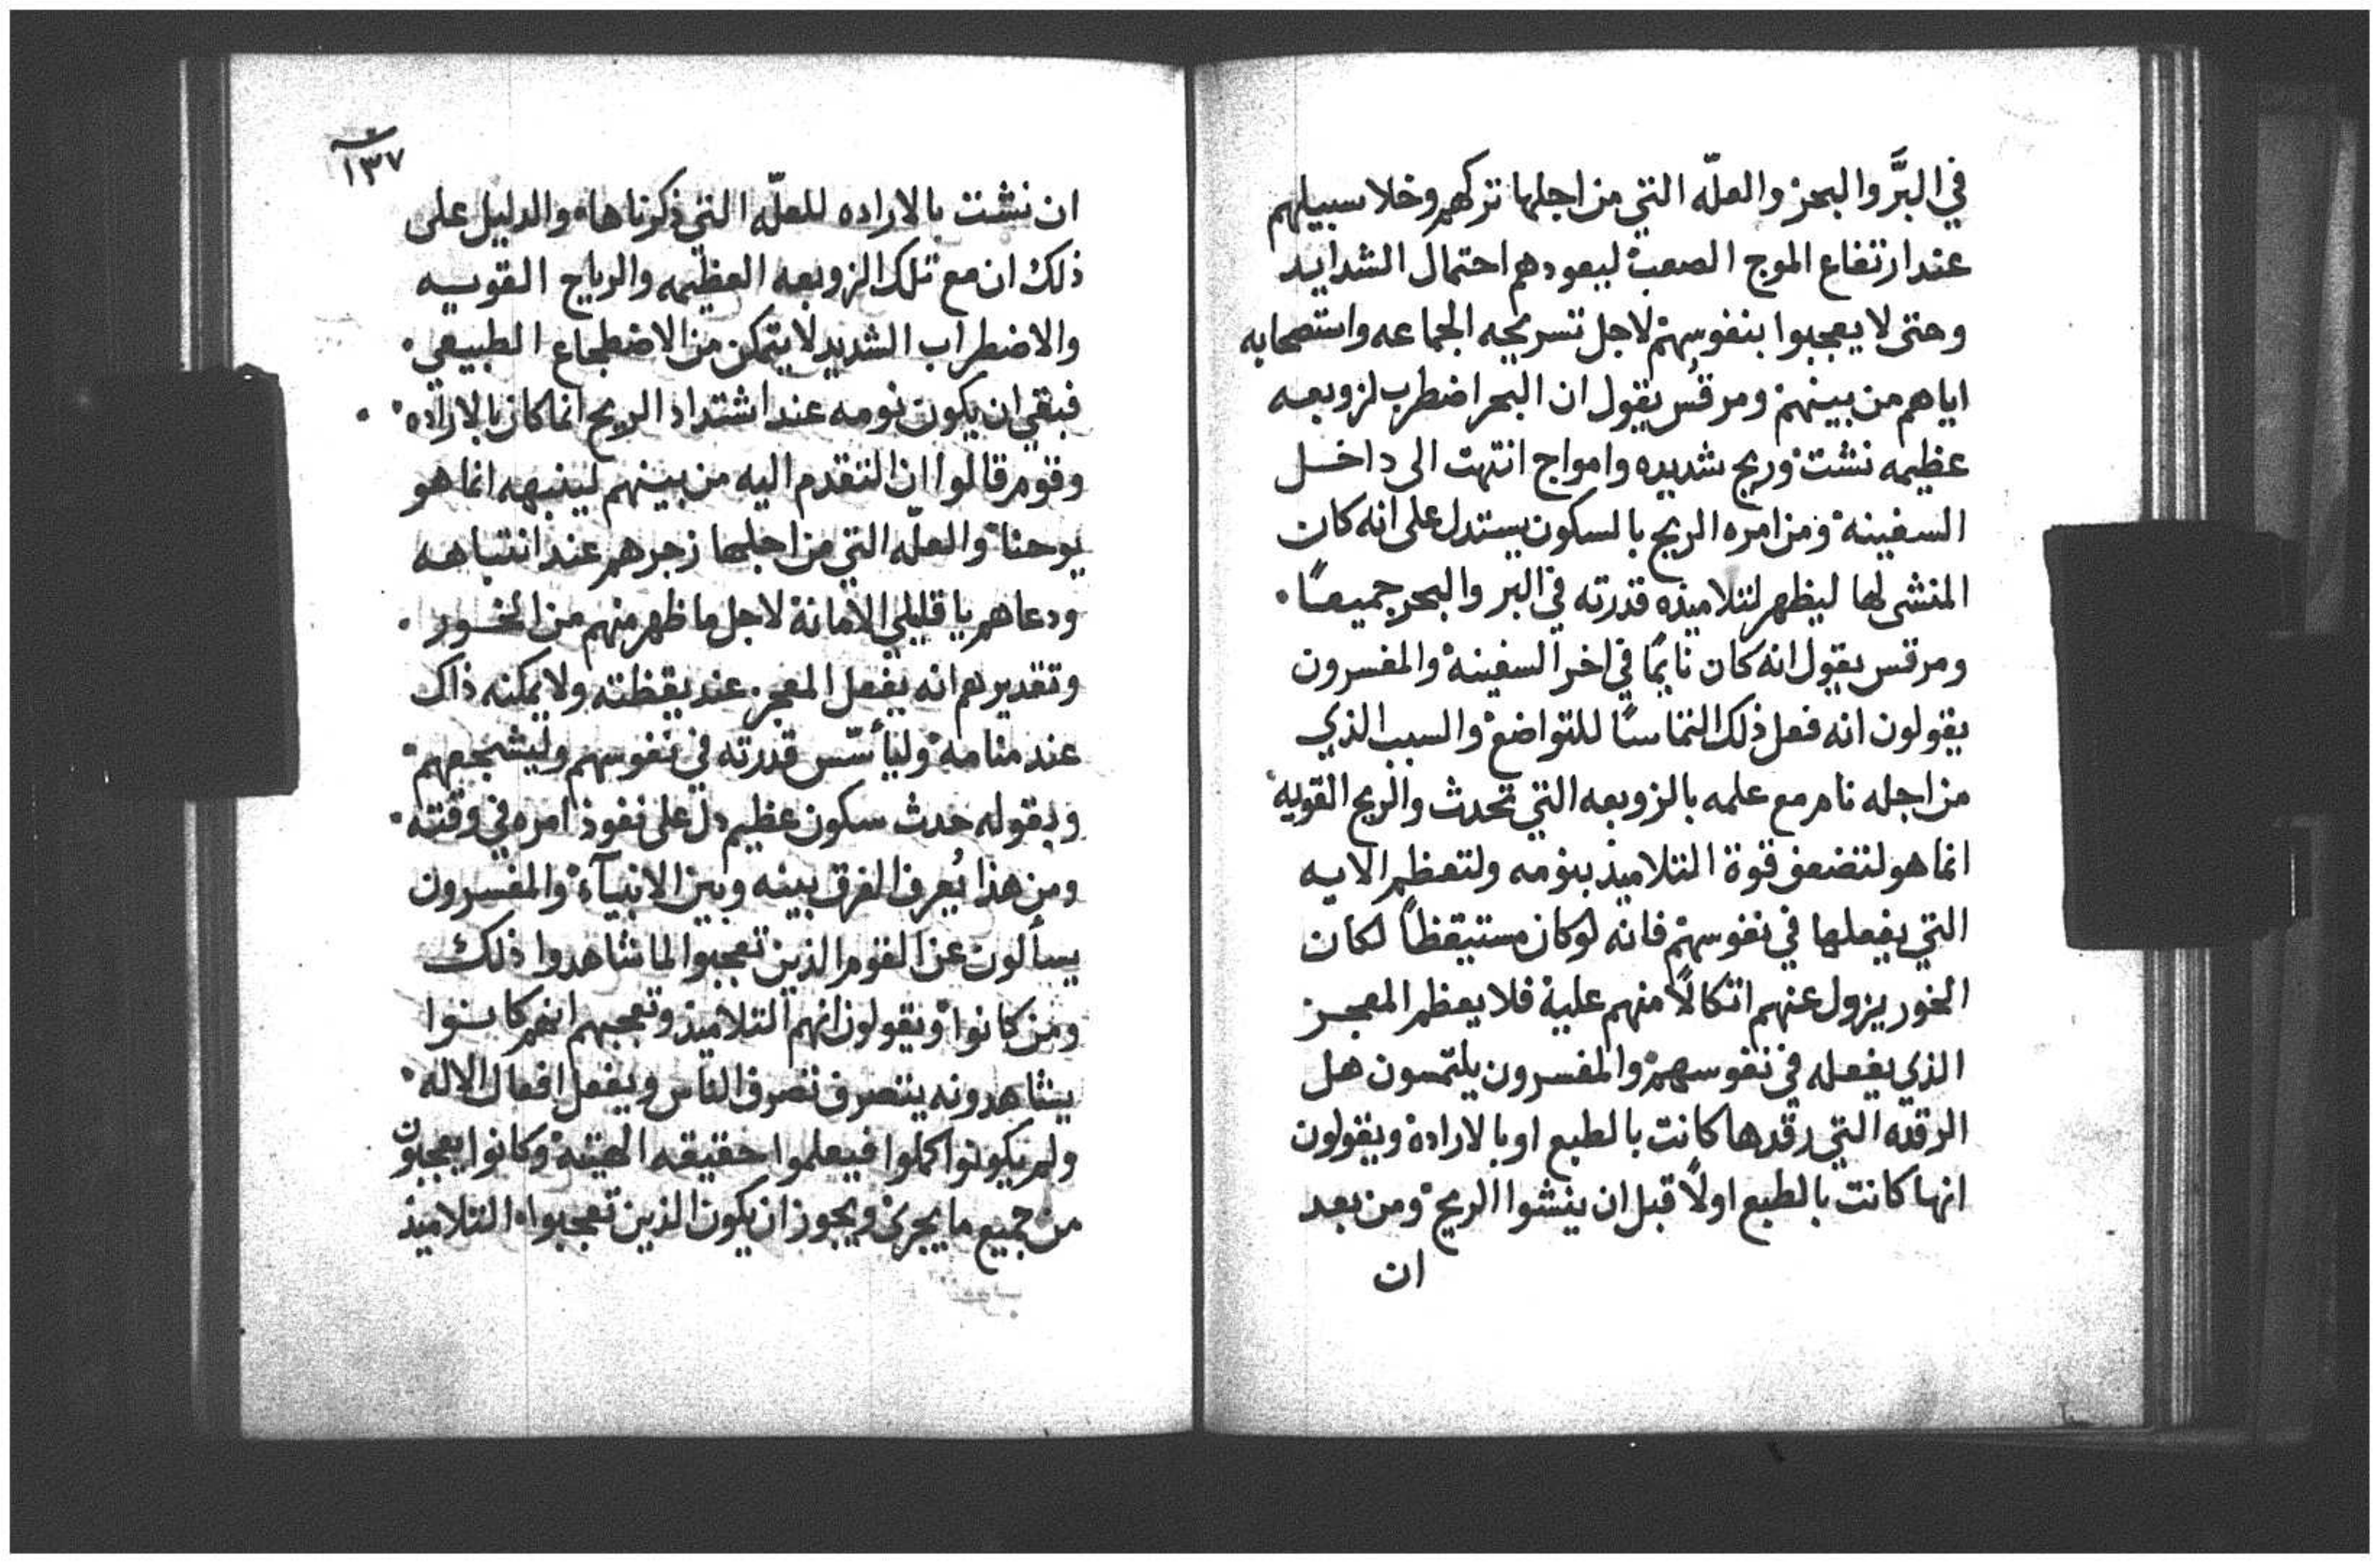 في البرَّ والبحر والعلّه التي من اجلها تركهم وخلا سبيلهم
عند ارتفاع الموج الصعب ليعودهم احتمال الشدايد
وحتى لا يعجبوا بنفوسهم لاجل تسريحه الجماعه واستصحابه
اياهم من بينهم ومرقس يقول ان البحر اضطرب لزوبعه
عظيمه نشت وريح شديده وامواج انتهت الى داخل
السفينه ومن امره الريح بالسكون يستدل على انه كان
المنشى لها ليظهر لتلاميذه قدرته في البر والبحر جميعًا.
ومرقس يقول انه كان نايمًا في اخر السفينه والمفسرون
يقولون انه فعل ذلك التماسًا للتواضع والسبب الذي
من اجله نام مع علمه بالزوبعه التي تحدث والريح القويه
انما هو لتضعف قوة التلاميذ بنومه ولتعظم الايه
التي يفعلها في نفوسهم فانه لو كان مستيقظاً لكان
الخور يزول عنهم اتكالاً منهم علية فلا يعظم المعجز
الذي يفعله في نفوسهم والمفسرون يلتمسون هل
الرقده التي رقدها كانت بالطبع او بالاراده ويقولون
انها كانت بالطبع اولاً قبل ان ينشوا الريح ومن بعد
ان
١٣٧
ان نشت بالاراده للعلّه التي ذكرناها والدليل على
ذلك ان مع تلك الزوبعه العظيمه والرياح القويه
والاضطراب الشديد لا يتمكن من الاضطجاع الطبيعي.
فبقي ان يكون نومه عند اشتداد الريح انما كان بالاراده.
وقوم قالوا ان المتقدم اليه من بينهم لينبهه انما هو
يوحنا والعلّه التي من اجلها زجرهم عند انتباهه
ودعاهم يا قليلي الامانة لاجل ما ظهر منهم من الخور.
وتقديرهم انه يفعل المعجز عند يقظته ولا يمكنه ذاك
عند منامه وليأسّس قدرته في نفوسهم وليشجعهم
وبقوله حدث سكون عظيم دل على نفوذ امره في وقته.
ومن هذا يُعرف الفرق بينه وبين الانبيآء والمفسرون
يسألون عن القوم الذين تعجبوا لما شاهدوا ذلك
ومن كانوا ويقولون انهم التلاميذ وتعجبهم انهم كانوا
يشاهدونه يتصرف تصرف الناس ويفعل افعال الاله
ولم يكونوا كملوا فيعلموا حقيقه الهيته وكانوا يعجبون
من جميع ما يجري ويجوز ان يكون الذين تعجبوا التلاميذ